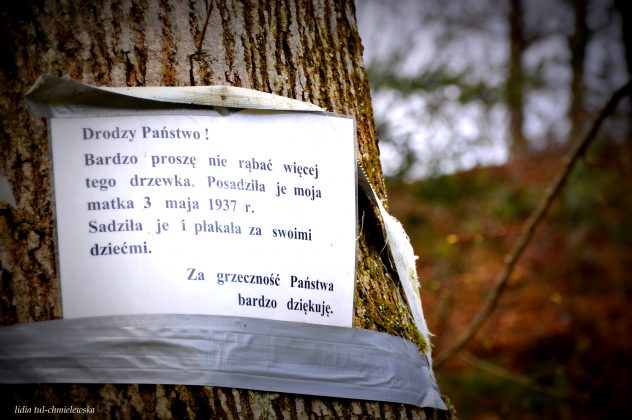 Drodzy Państwo !
Bardzo proszę nie rąbać więcej
tego drzewka. Posadziła je moja
matka 3 maja 1937 r.
Sadziła je i płakała za swoimi
dziećmi.
Za grzeczność Państwa
bardzo dziękuję.
lidia tul-chmielewska